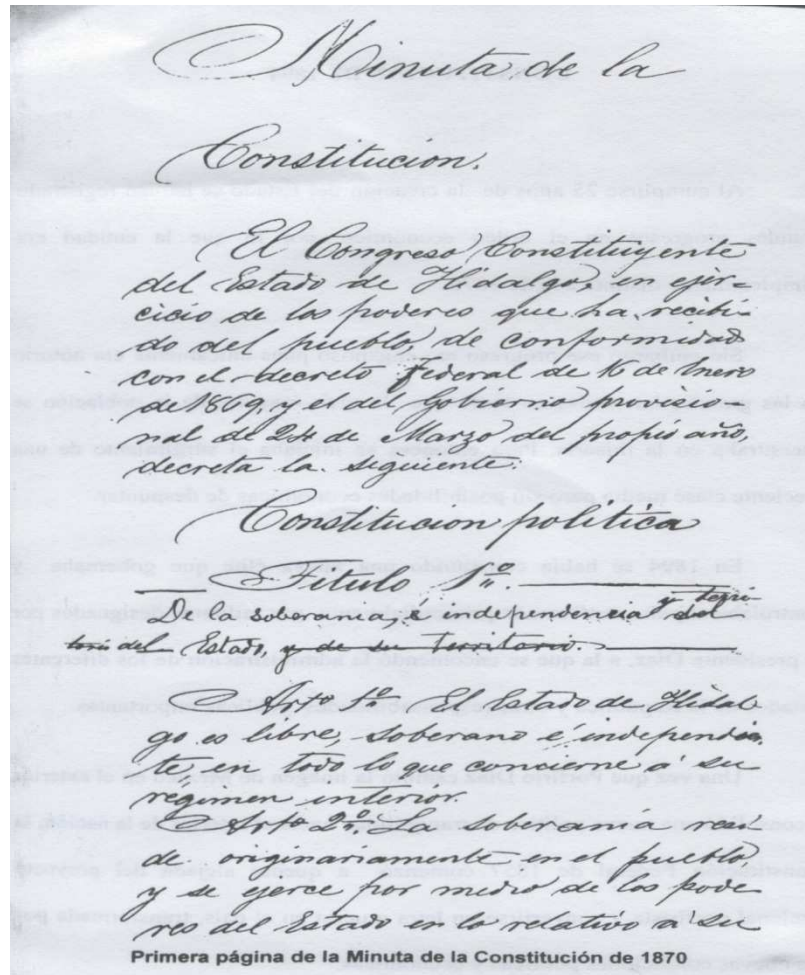 Minuta de la
Constitucion.
El Congreso Constituyente
del Estado de Hidalgo, en ejer-
cicio de los poderes que ha recibi-
do del pueblo, de conformidad
con el decreto federal de 16 de Enero
de 1869, y el del Gobierno provisio-
nal de 24 de Marzo del propio año,
decreta la siguiente:
Constitucion politica
Titulo 1º.
De la soberania, é independencia y terri-
torio del Estado, y de su territorio.
Artº 1º El Estado de Hidal-
go es libre, soberano é independien-
te en todo lo que concierne á su
régimen interior.
Artº 2º. La soberania resi-
de originariamente en el pueblo,
y se ejerce por medio de los pode-
res del Estado en lo relativo á su
Primera página de la Minuta de la Constitución de 1870